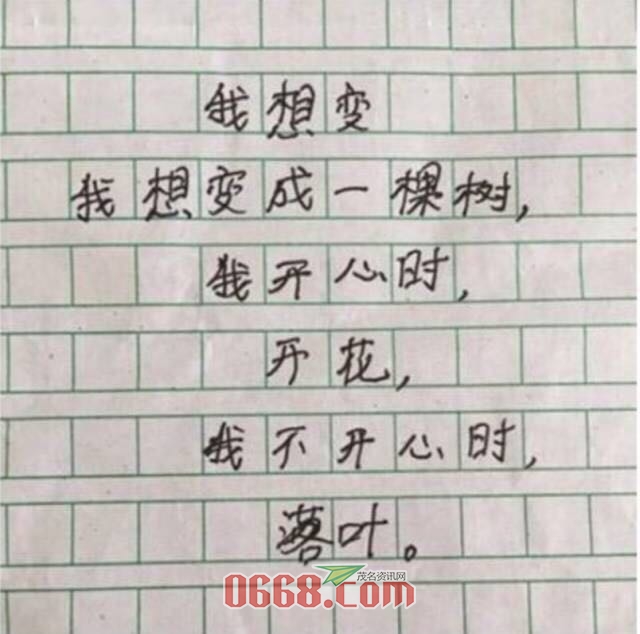 我想变
我想变成一棵树，
我开心时，
开花，
我不开心时，
落叶。
茂名资讯网
0668.com